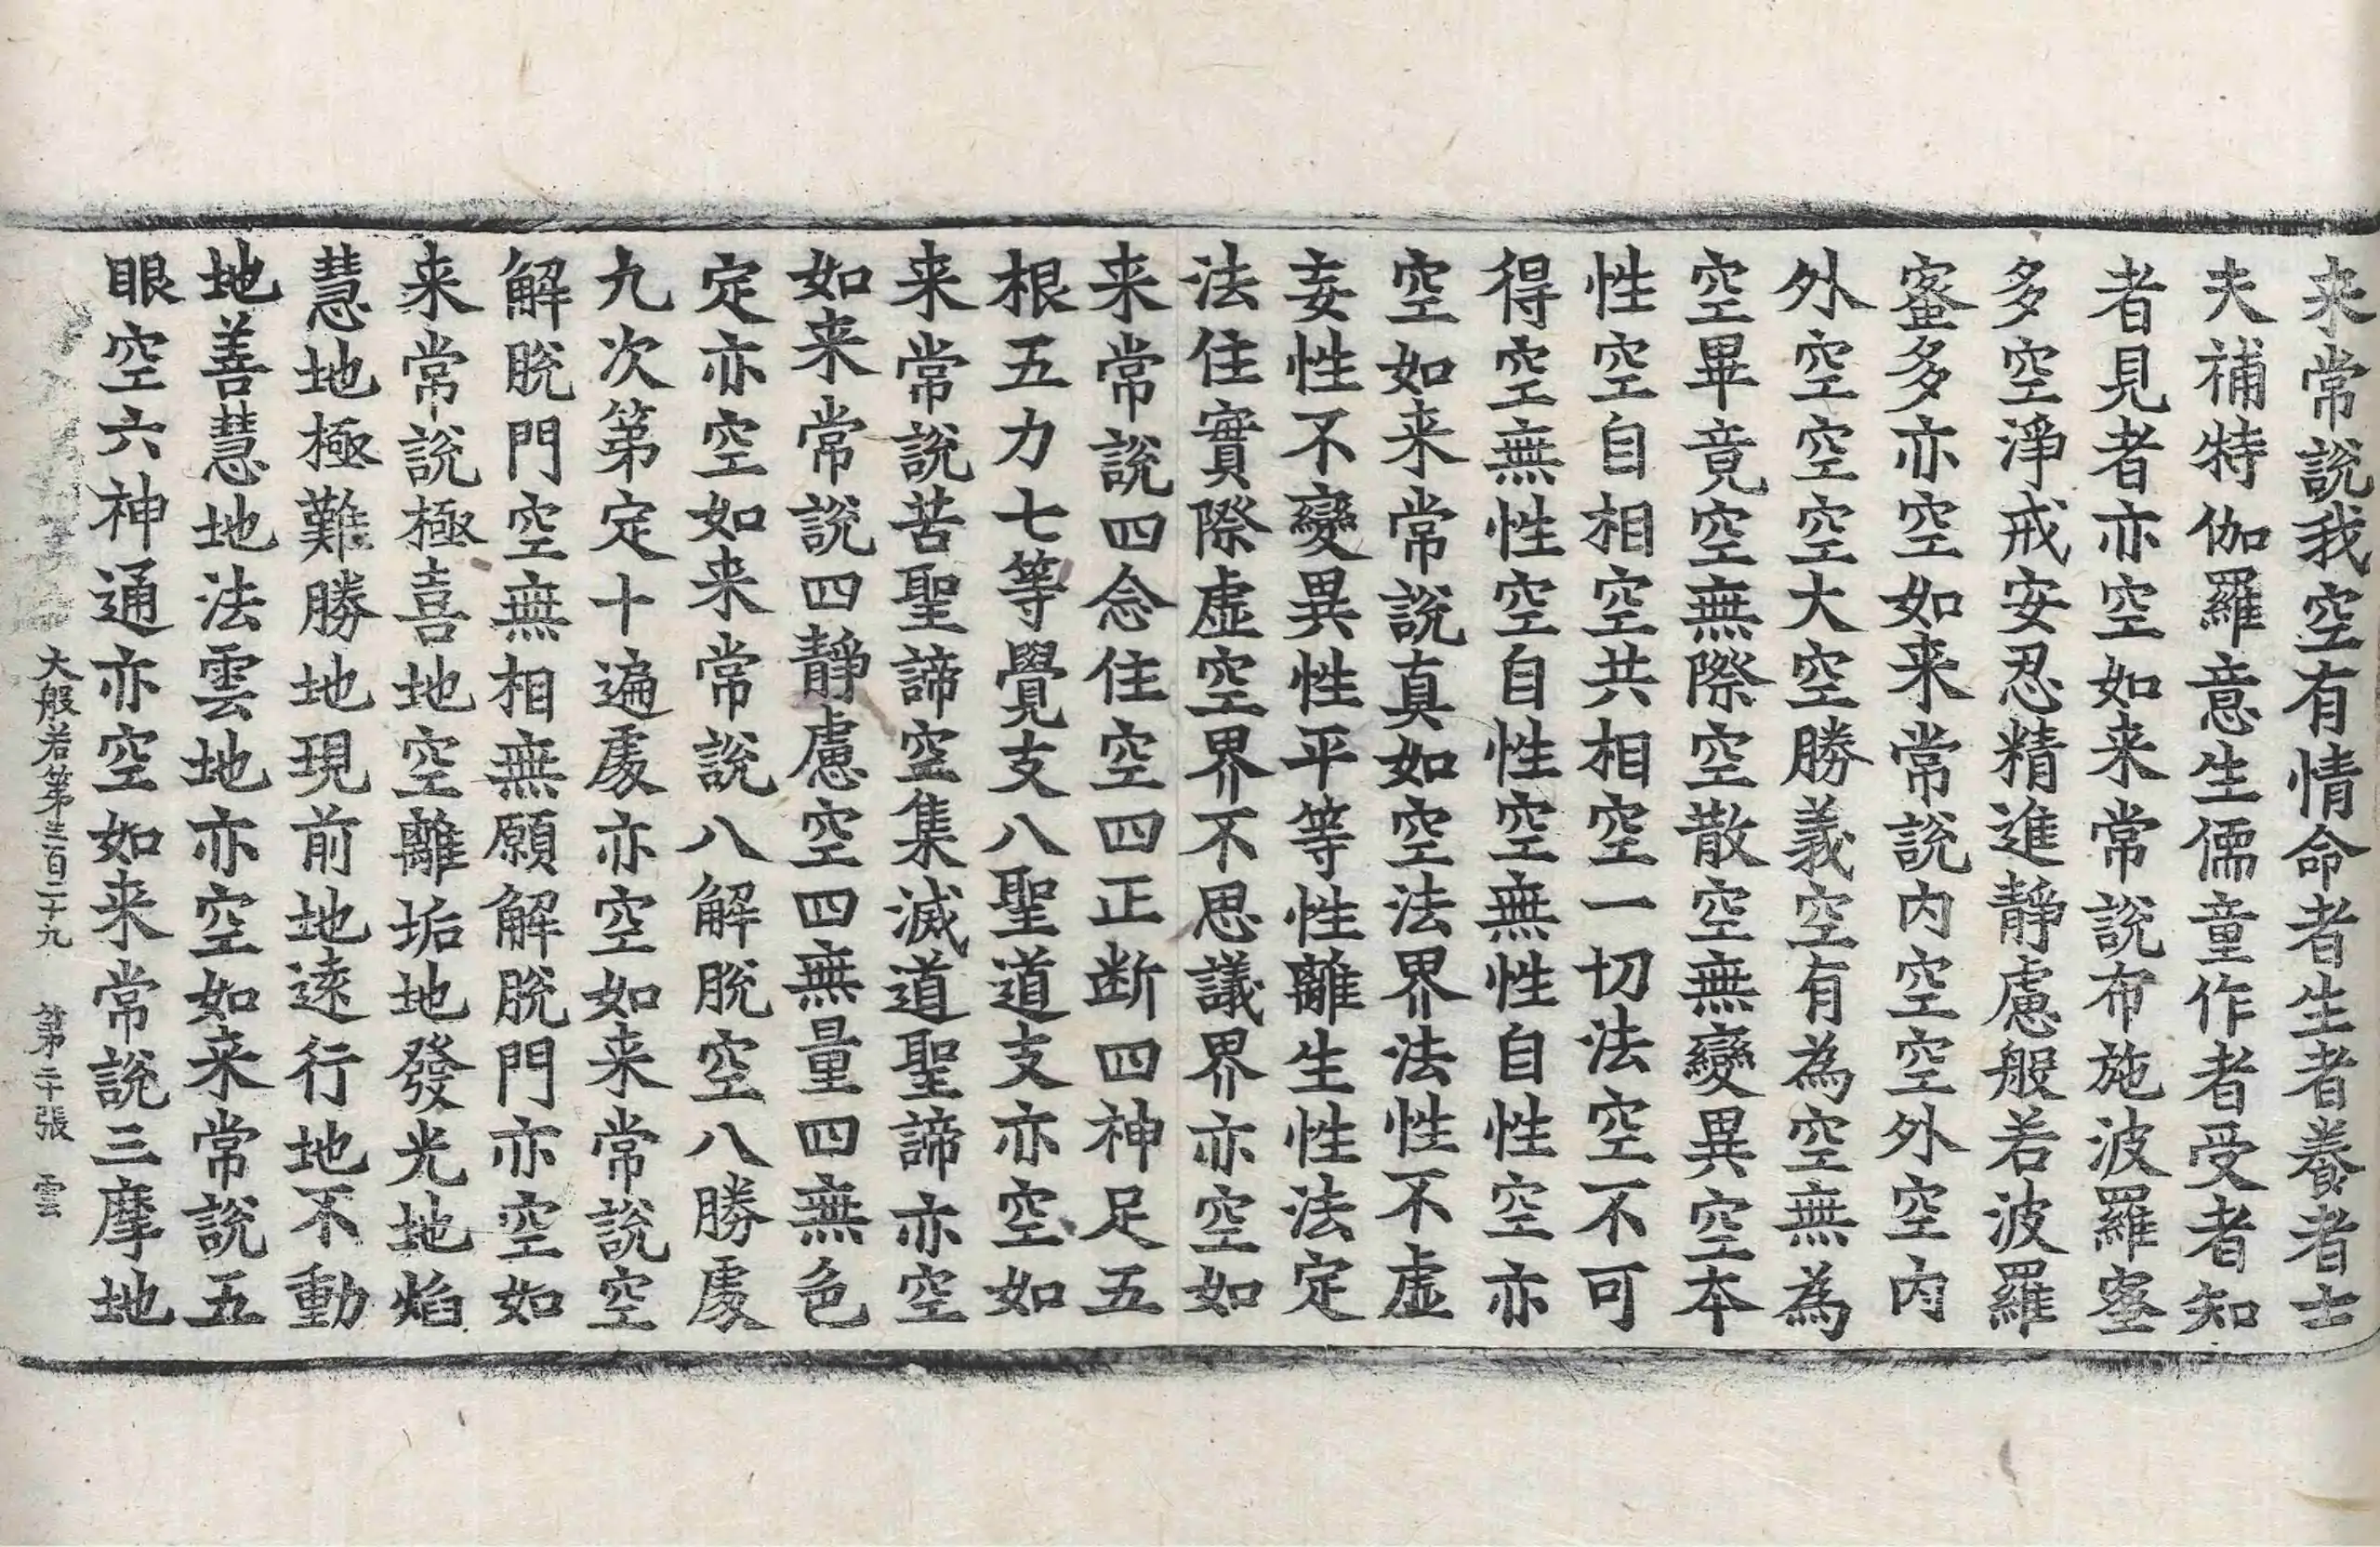 来常說我空有情命者生者養者士
夫補特伽羅意生儒童作者受者知
者見者亦空如来常說布施波羅蜜
多空淨戒安忍精進靜慮般若波羅
蜜多亦空如来常說内空空外空内
外空空空大空勝義空有為空無為
空畢竟空無際空散空無變異空本
性空自相空共相空一切法空不可
得空無性空自性空無性自性空亦
空如来常說真如空法界法性不虛
妄性不變異性平等性離生性法定
法住實際虛空界不思議界亦空如
来常說四念住空四正断四神足五
根五力七等覺支八聖道支亦空如
来常說苦聖諦空集滅道聖諦亦空
如来常說四靜慮空四無量四無色
定亦空如来常說八解脫空八勝處
九次第定十遍處亦空如来常說空
解脫門空無相無願解脫門亦空如
来常說極喜地空離垢地發光地焰
慧地極難勝地現前地遠行地不動
地善慧地法雲地亦空如来常說五
眼空六神通亦空如来常說三摩地
大般若第三百二十九 第二十張 雲